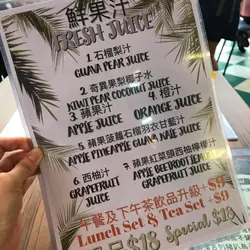 鮮果汁
FRESH JUICE
1. 石榴梨汁
GUAVA PEAR JUICE
2. 奇異果梨椰子水
KIWI PEAR COCONUT JUICE
3. 蘋果汁
APPLE JUICE
4. 橙汁
ORANGE JUICE
5. 蘋果菠蘿石榴羽衣甘藍汁
APPLE PINEAPPLE GUAVA KALE JUICE
6. 西柚汁
GRAPEFRUIT JUICE
7. 蘋果紅菜頭西柚檸檬汁
APPLE BEETROOT
GRAPEFRUIT
JUICE
午餐及下午茶飲品升級+$9
Lunch Set & Tea Set +$9
$18 Special $18